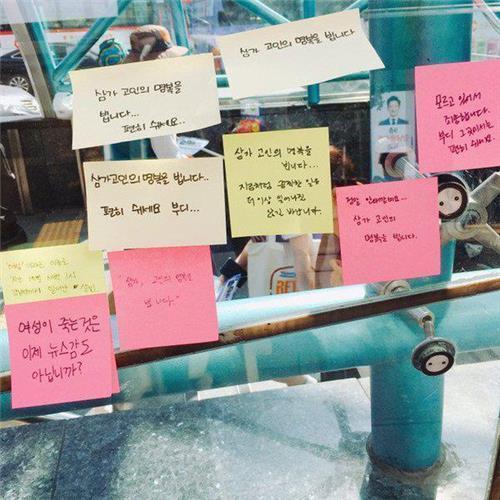 삼가 고인의 명복을 빕니다
삼가 고인의 명복을
빕니다...
편히 쉬세요.
모르고 있어서
죄송합니다.
부디 그곳에서는
편히 쉬세요.
삼가 고인의 명복을
빕니다...
지금처럼 끔찍한 일은
더 이상 일어나질
않길 바랍니다.
삼가고인의 명복을 빕니다..
편히 쉬세요 부디...
정말 안타깝네요..
삼가 고인의
명복을 빕니다.
"삼가, 고인의 명복을
빕니다."
여성이 죽는것은
이제 뉴스감도
아닙니까?